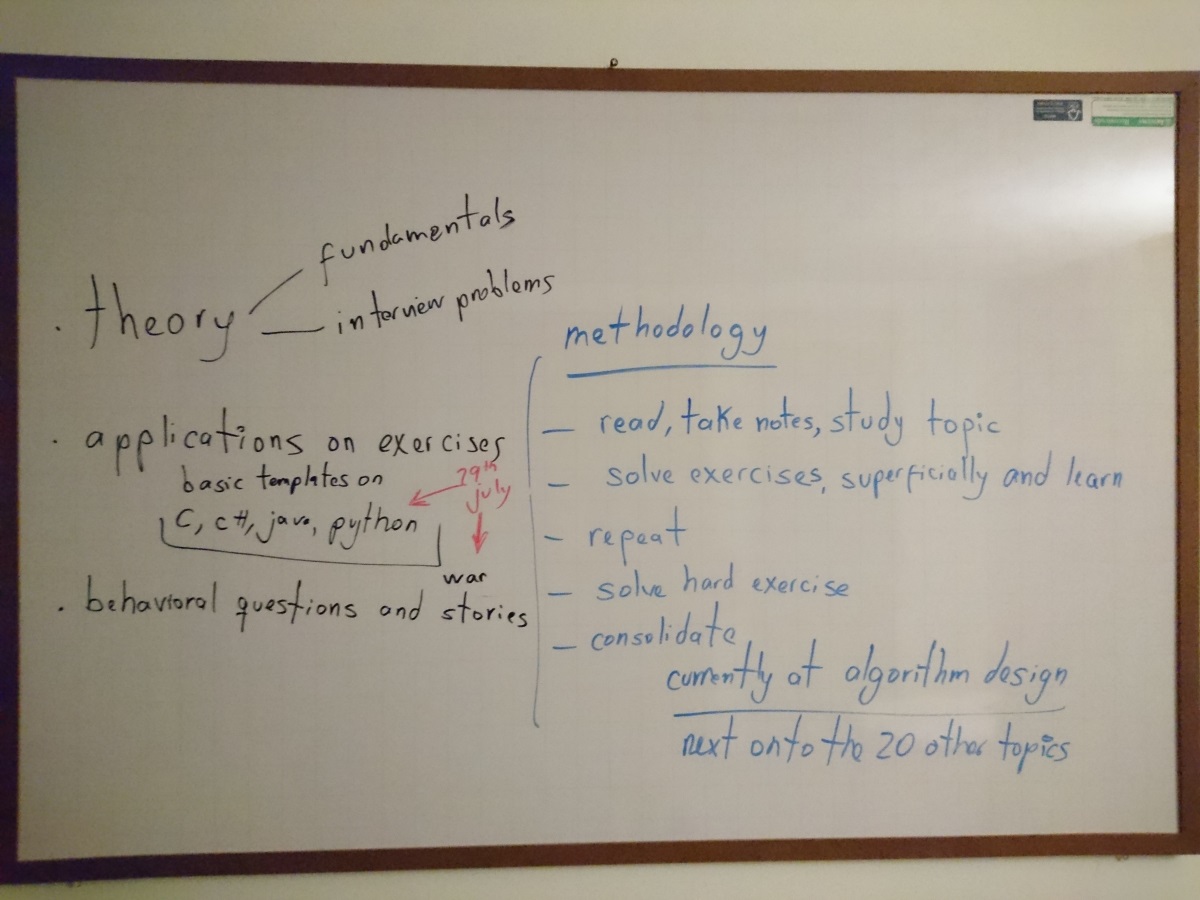 fundamentals
. theory
interview problems
. applications on exercises
basic templates on
C, c#, java, python
29th
july
war
. behavioral questions and stories
methodology
– read, take notes, study topic
– solve exercises, superficially and learn
– repeat
– solve hard exercise
– consolidate
currently at algorithm design
next onto the 20 other topics